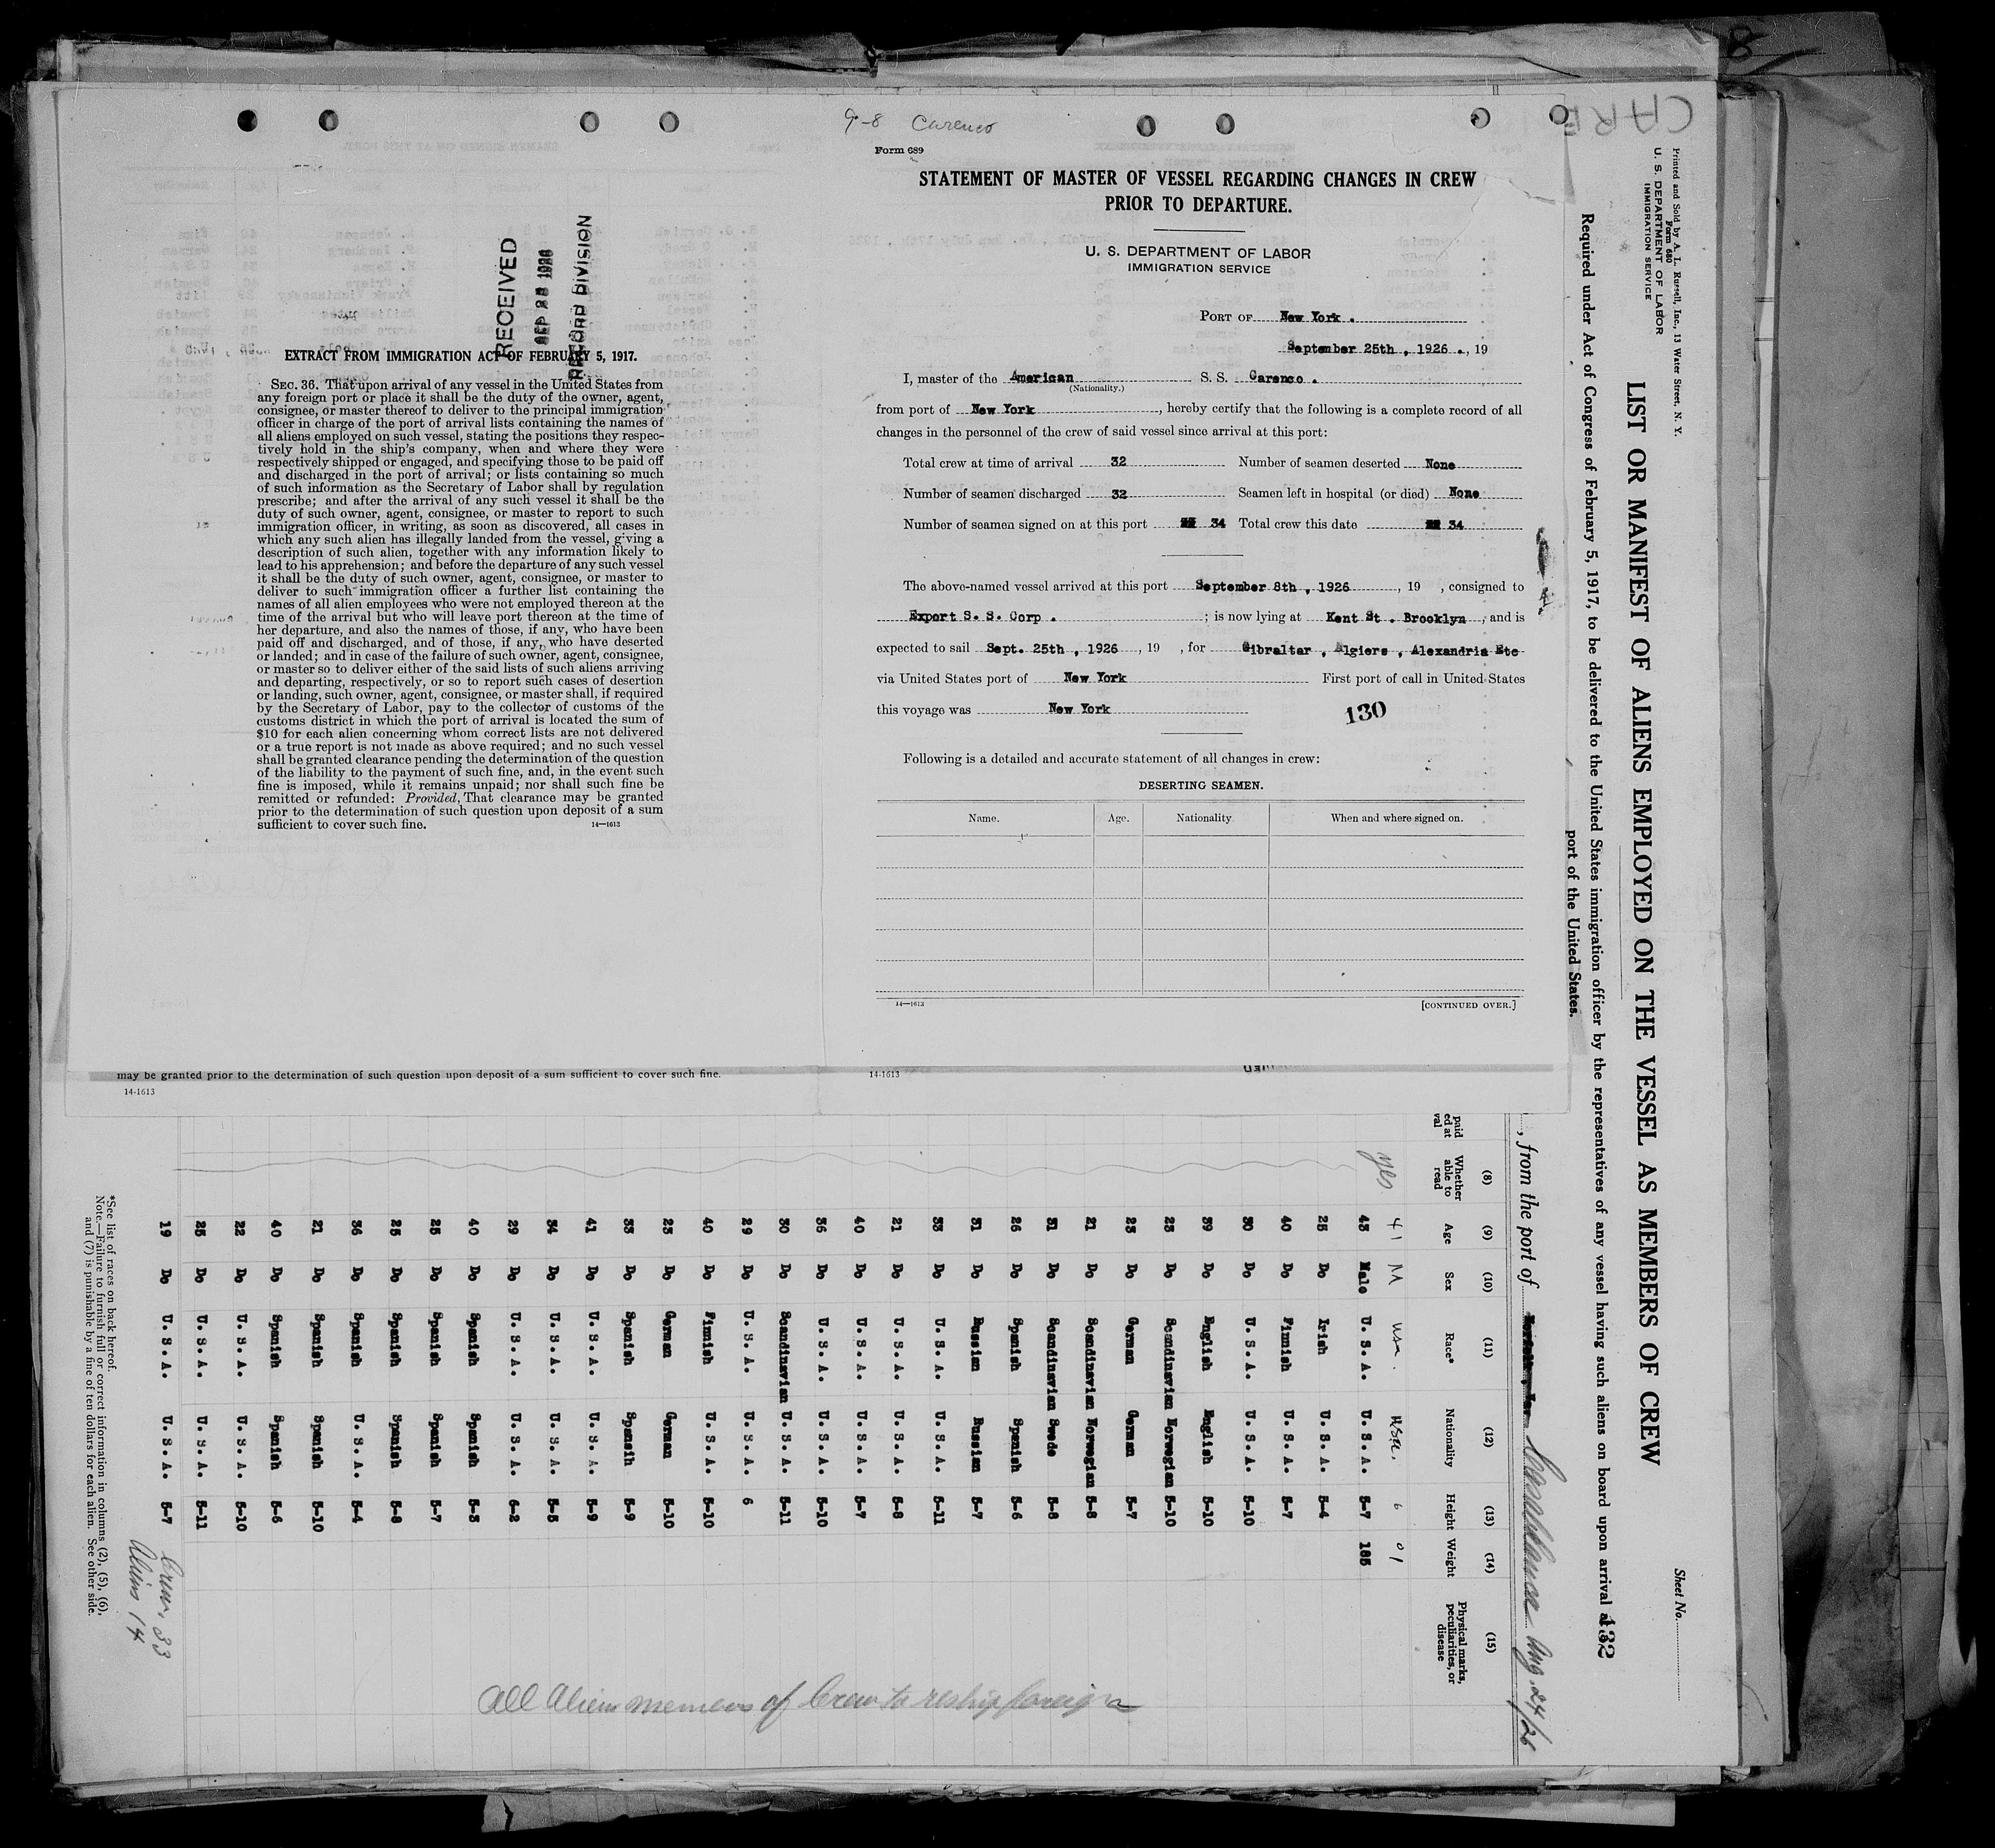 9-8 Carenco
Form 689
STATEMENT OF MASTER OF VESSEL REGARDING CHANGES IN CREW
PRIOR TO DEPARTURE.
U. S. DEPARTMENT OF LABOR
IMMIGRATION SERVICE
PORT OF New York .
September 25th , 1926 ., 19
I, master of the American S. S. Carenco .
(Nationality.)
from port of New York , hereby certify that the following is a complete record of all
changes in the personnel of the crew of said vessel since arrival at this port:
Total crew at time of arrival 32 Number of seamen deserted None
Number of seamen discharged 32 Seamen left in hospital (or died) None
Number of seamen signed on at this port 34 Total crew this date 34
The above-named vessel arrived at this port September 8th , 1926 , 19 , consigned to
Export S. S. Corp . ; is now lying at Kent St . Brooklyn , and is
expected to sail Sept. 25th , 1926 , 19 , for Gibraltar , Algiers , Alexandria Etc
via United States port of New York First port of call in United States
this voyage was New York
130
Following is a detailed and accurate statement of all changes in crew:
DESERTING SEAMEN.
Name. Age. Nationality When and where signed on.
14—1613 [CONTINUED OVER.]
RECEIVED
SEP 28 1926
RECORD DIVISION
EXTRACT FROM IMMIGRATION ACT OF FEBRUARY 5, 1917.
SEC. 36. That upon arrival of any vessel in the United States from
any foreign port or place it shall be the duty of the owner, agent,
consignee, or master thereof to deliver to the principal immigration
officer in charge of the port of arrival lists containing the names of
all aliens employed on such vessel, stating the positions they respec-
tively hold in the ship's company, when and where they were
respectively shipped or engaged, and specifying those to be paid off
and discharged in the port of arrival; or lists containing so much
of such information as the Secretary of Labor shall by regulation
prescribe; and after the arrival of any such vessel it shall be the
duty of such owner, agent, consignee, or master to report to such
immigration officer, in writing, as soon as discovered, all cases in
which any such alien has illegally landed from the vessel, giving a
description of such alien, together with any information likely to
lead to his apprehension; and before the departure of any such vessel
it shall be the duty of such owner, agent, consignee, or master to
deliver to such immigration officer a further list containing the
names of all alien employees who were not employed thereon at the
time of the arrival but who will leave port thereon at the time of
her departure, and also the names of those, if any, who have been
paid off and discharged, and of those, if any, who have deserted
or landed; and in case of the failure of such owner, agent, consignee,
or master so to deliver either of the said lists of such aliens arriving
and departing, respectively, or so to report such cases of desertion
or landing, such owner, agent, consignee, or master shall, if required
by the Secretary of Labor, pay to the collector of customs of the
customs district in which the port of arrival is located the sum of
$10 for each alien concerning whom correct lists are not delivered
or a true report is not made as above required; and no such vessel
shall be granted clearance pending the determination of the question
of the liability to the payment of such fine, and, in the event such
fine is imposed, while it remains unpaid; nor shall such fine be
remitted or refunded: Provided, That clearance may be granted
prior to the determination of such question upon deposit of a sum
sufficient to cover such fine. 14—1613
may be granted prior to the determination of such question upon deposit of a sum sufficient to cover such fine.
14-1613 14-1613
Printed and Sold by A. L. Russell, Inc., 13 Water Street, N. Y.
Form 680
U. S. DEPARTMENT OF LABOR
IMMIGRATION SERVICE
Sheet No.
LIST OR MANIFEST OF ALIENS EMPLOYED ON THE VESSEL AS MEMBERS OF CREW
Required under Act of Congress of February 5, 1917, to be delivered to the United States immigration officer by the representatives of any vessel having such aliens on board upon arrival at
port of the United States.
132
, from the port of Casablanca Aug. 24/26
(8) (9) (10) (11) (12) (13) (14) (15)
Whether able to read Age Sex Race* Nationality Height Weight Physical marks, peculiarities, or disease
yes 41 M usa. usa. 6
43 Male U. S. A. U. S. A. 5-7 185
25 Do Irish U. S. A. 5-4
40 Do Finnish U. S. A. 5-7
30 Do U. S. A. U. S. A. 5-10
39 Do English English 5-10
23 Do Scandinavian Norwegian 5-10
23 Do German German 5-7
21 Do Scandinavian Norwegian 5-8
31 Do Scandinavian Swede 5-8
26 Do Spanish Spanish 5-6
31 Do Russian Russian 5-7
33 Do U. S. A. U. S. A. 5-11
21 Do U. S. A. U. S. A. 5-8
40 Do U. S. A. U. S. A. 5-7
36 Do U. S. A. U. S. A. 5-10
30 Do Scandinavian U. S. A. 5-11
29 Do U. S. A. U. S. A. 6
40 Do Finnish U. S. A. 5-10
23 Do German German 5-10
33 Do Spanish Spansih 5-9
41 Do U. S. A. U. S. A. 5-9
34 Do U. S. A. U. S. A. 5-5
29 Do U. S. A. U. S. A. 6-2
40 Do Spanish Spanish 5-3
25 Do Spanish Spanish 5-7
25 Do Spanish Spanish 5-8
36 Do Spanish U. S. A. 5-4
21 Do Spanish Spanish 5-10
40 Do Spanish Spanish 5-6
22 Do U. S. A. U. S. A. 5-10
25 Do U. S. A. U. S. A. 5-11
19 Do U. S. A. U. S. A. 5-7
Crew, 33
Aliens 14
All Alien members of Crew to reship foreign
*See list of races on back hereof.
Note.—Failure to furnish full or correct information in columns (2), (5), (6),
and (7) is punishable by a fine of ten dollars for each alien. See other side.